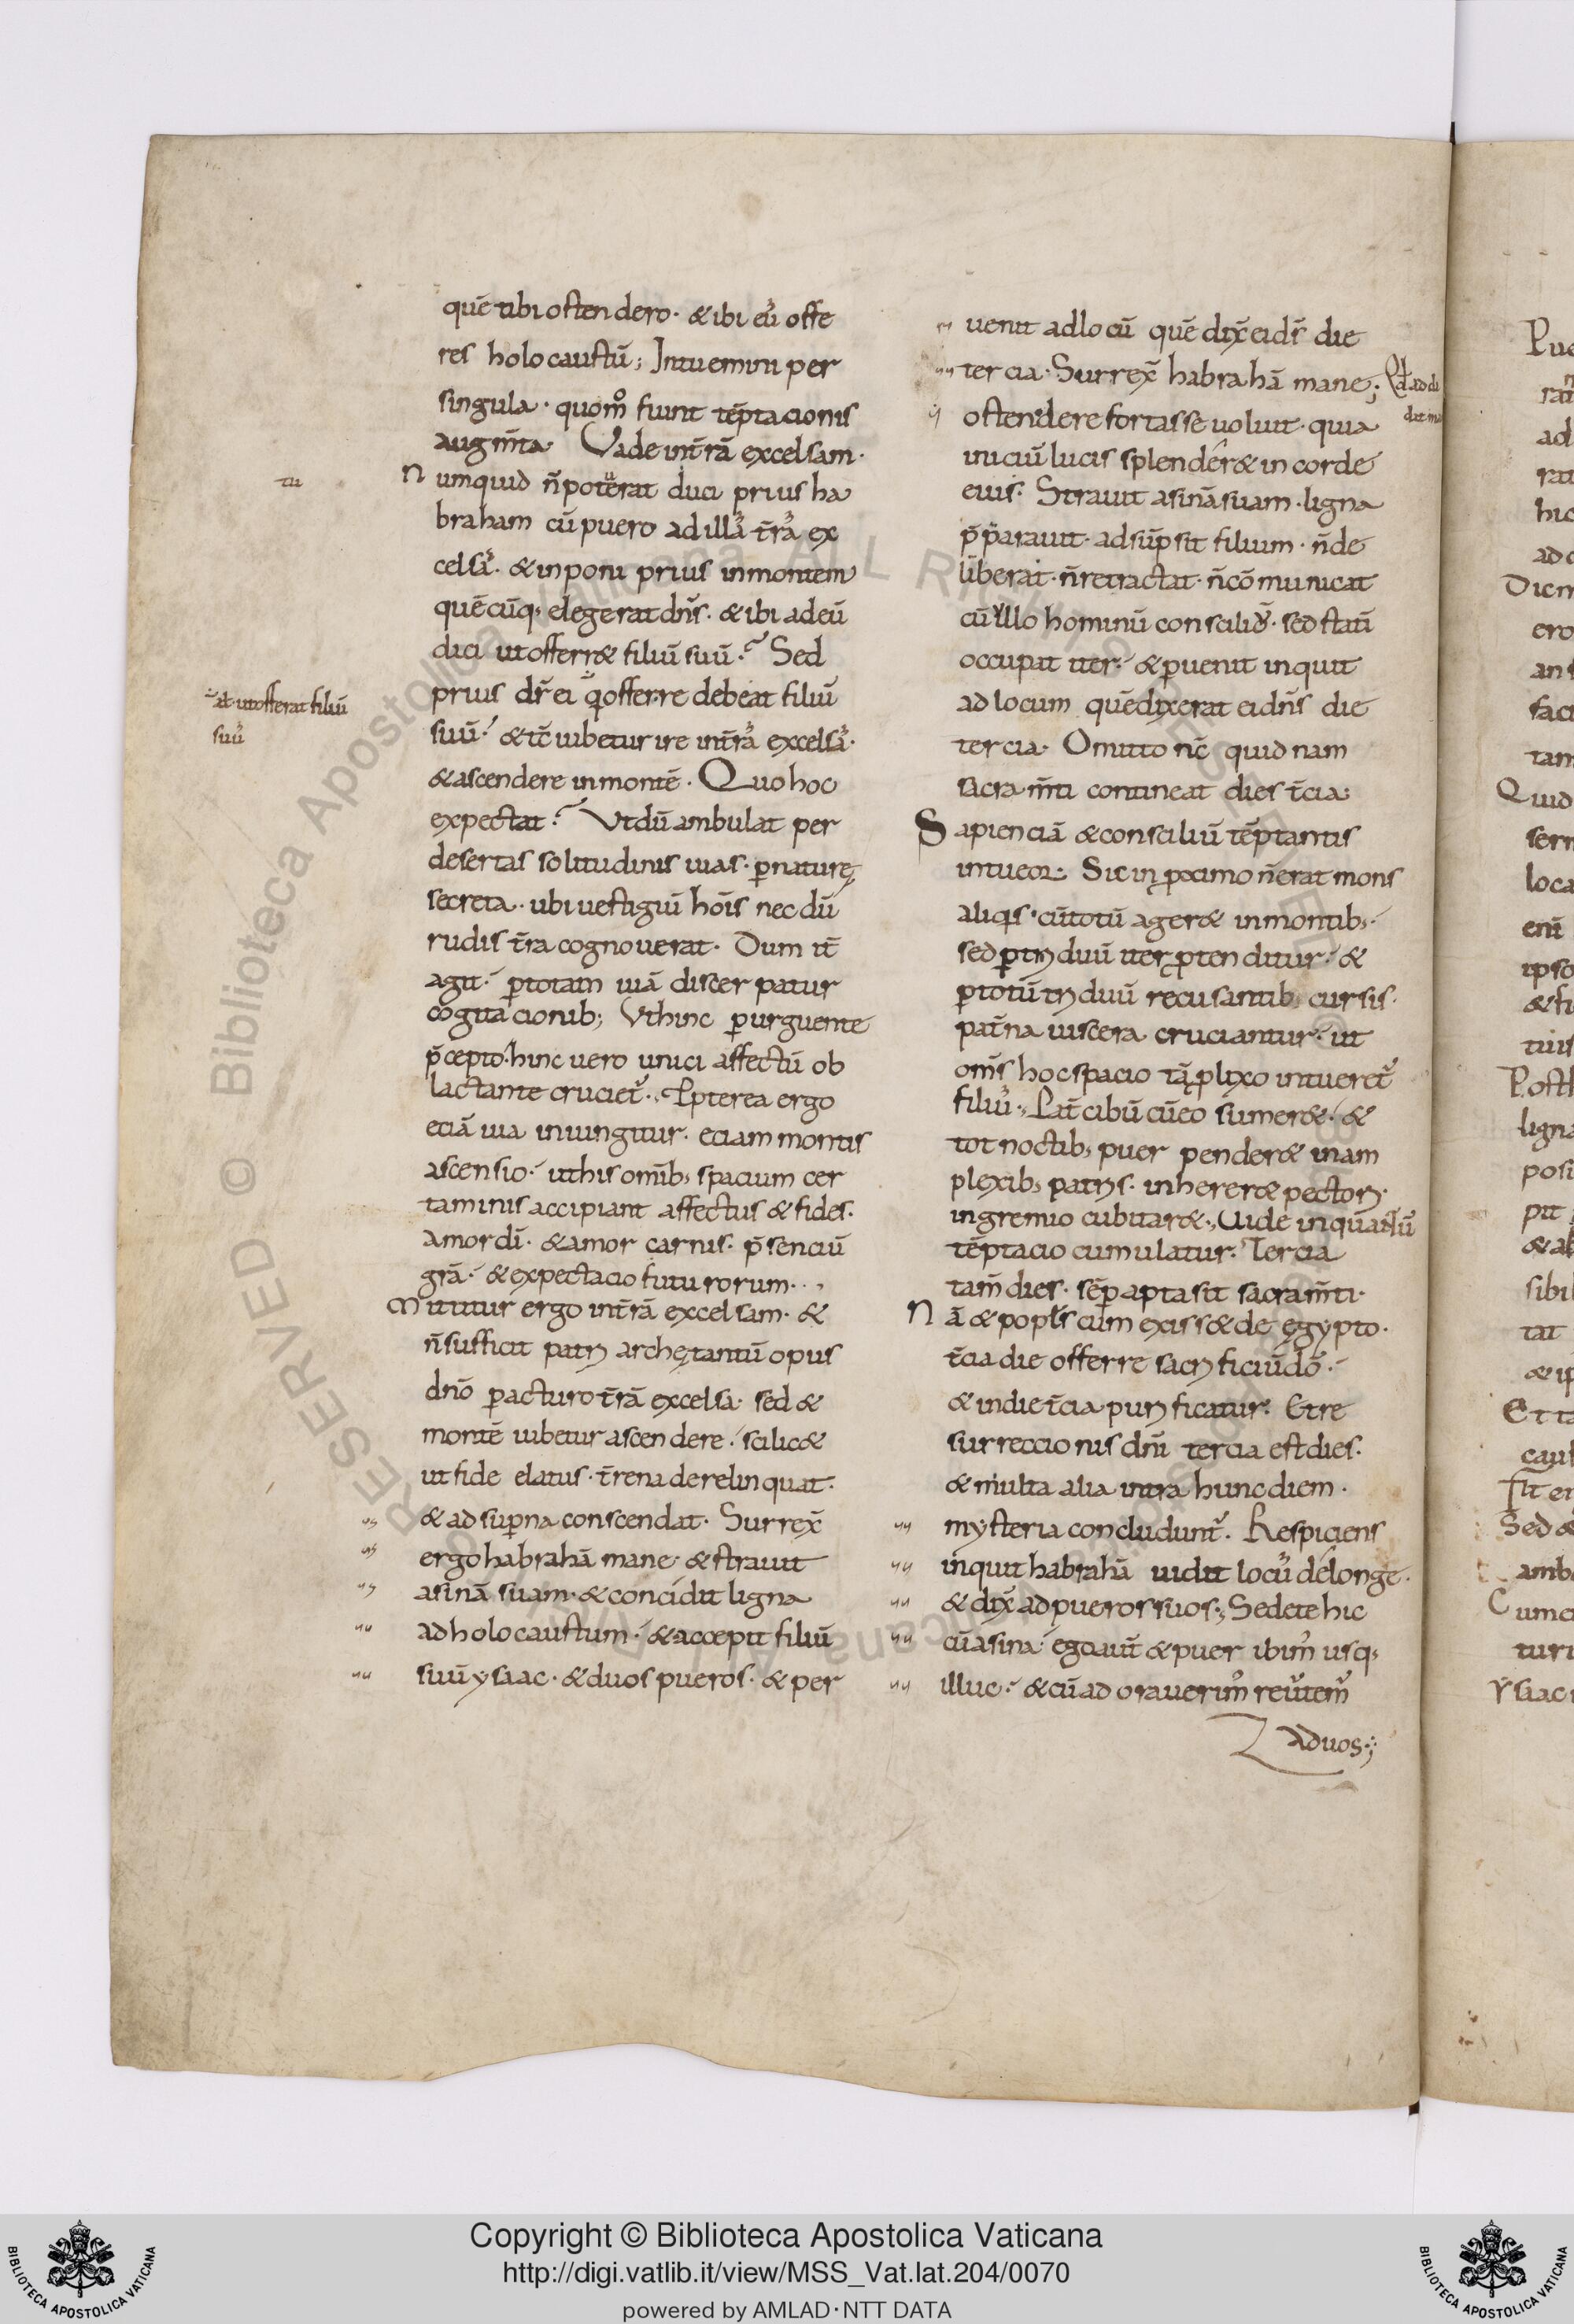 quē tibi osten dero · & ibi eū offe
res holocaustū ; Intuemini per
singula · quomo fuint tēptacionis
augm̄ta Vade int̄rā excelsam ·
tu
N umquid n̄ poterat duci prius ha
braham cū puero ad illā t̄rā ex
celsā · & inponi prius inmontem
quēcūq; elegerat dn̄s · & ibi adeū
dici utofferr& filiū suū · Sed
at utofferat filiū
suū
prius dr̄ ei q̄ offerre debeat filiū
suū · & tc̄ iubetur ire int̄rā excelsā ·
& ascendere inmontē · Quo hoc
expectat · Vtdū ambulat per
desertas solitudinis uias · ꝑ naturę
secreta · ubi uestigiū hōis nec dū
rudis t̄ra cognouerat · Dum it̄
agit · ꝑtotam uiā discer patur
cogita cionib; Vthinc ꝑ urguente
p̄cepto · hinc uero unici affectū ob
lactante cruciet᷑ · Ꝓpterea ergo
eciā uia iniungitur · eciam montis
ascensio · uthis om̄ib; spacium cer
taminis accipiant affectus & fides ·
Amor dī · & amor carnis · p̄senciū
grā · & expectacio futurorum ·
M ittitur ergo int̄rā excelsam · &
n̄sufficit patri archętantū opus
dnō ꝑacturo t̄rā excelsa · sed &
montē iubetur ascendere · scilic&
ut fide elatus · t̄rena derelin quat ·
& ad suꝑna conscendat · Surrex̄
ergo habrahā mane · & strauit
asinā suam · & concidit ligna
ad holocaustum · & accepit filiū
suū ysaac · & duos pueros · & per
uenit adlocū quē dix̄ ei ds̄ die
tercia · Surrex̄ habrahā mane ;
ostendere fortasse uoluit · quia
iniciū lucis splender& in corde
eius · Strauit asinā suam · ligna
p̄parauit · adsūpsit filium · n̄ de
liberat · n̄ retractat · n̄ cōmunicat
cū ullo hominū consciliū · sed statī
occupat iter · & ꝑuenit inquit
ad locum quē dixerat ei dn̄s die
tercia · Omitto nc̄ quid nam
sacra m̄ti contineat dies t̄cia ·
S apienciā & consciliū tēptantis
intueor · Sic in ꝓximo n̄ erat mons
aliqis · cū totū ager& in montib; ·
sed ꝑ triduū iter ꝓten ditur · &
ꝑ totū triduū recusantib; cursis ·
pat̄na uiscera cruciantur · ut
om̄s hoc spacio tā ꝓlixo intueret᷑
filiū · Pat̄ cibū cū eo sumer& · &
tot noctib; puer pender& in am
plexib; patris · inherer& pectori ·
in gremio cubitar& · Uide in quantū
tēptacio cumulatur · Tercia
tam̄ dies · sēꝑ apta sit sacram̄ti ·
N ā & popls̄ cum exiss& de ęgypto ·
t̄cia die offerre sacri ficiū dō ·
& in die t̄cia puri ficatur · Et re
surreccio nis dn̄i tercia est dies ·
& multa alia intra hunc diem ·
mysteria concludunt᷑ · Respiciens
inquit habrahā uidit locū de longe ·
& dix̄ ad pueros suos ; Sedete hic
cū asina · ego aut̄ & puer ibim᷒ usq;
illuc · & cū ad orauerim᷒ reu̇tem᷒
ad uos ;
Copyright © Biblioteca Apostolica Vaticana
http://digi.vatlib.it/view/MSS_Vat.lat.204/0070
powered by AMLAD·NTT DATA